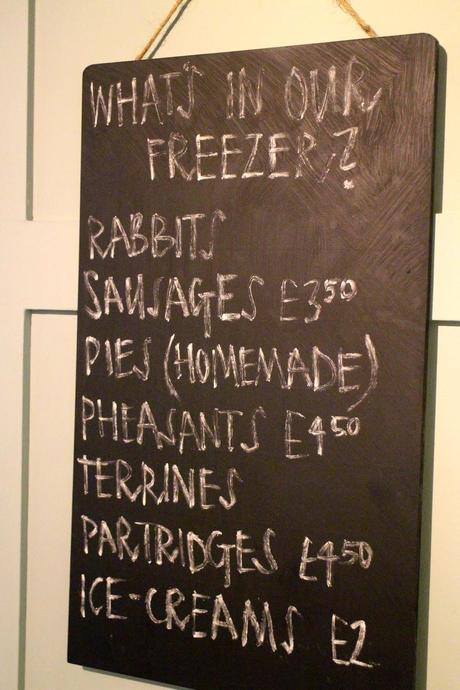 WHAT'S IN OUR
FREEZER?
RABBITS
SAUSAGES £3.50
PIES (HOMEMADE)
PHEASANTS £4.50
TERRINES
PARTRIDGES £4.50
ICE-CREAMS £2